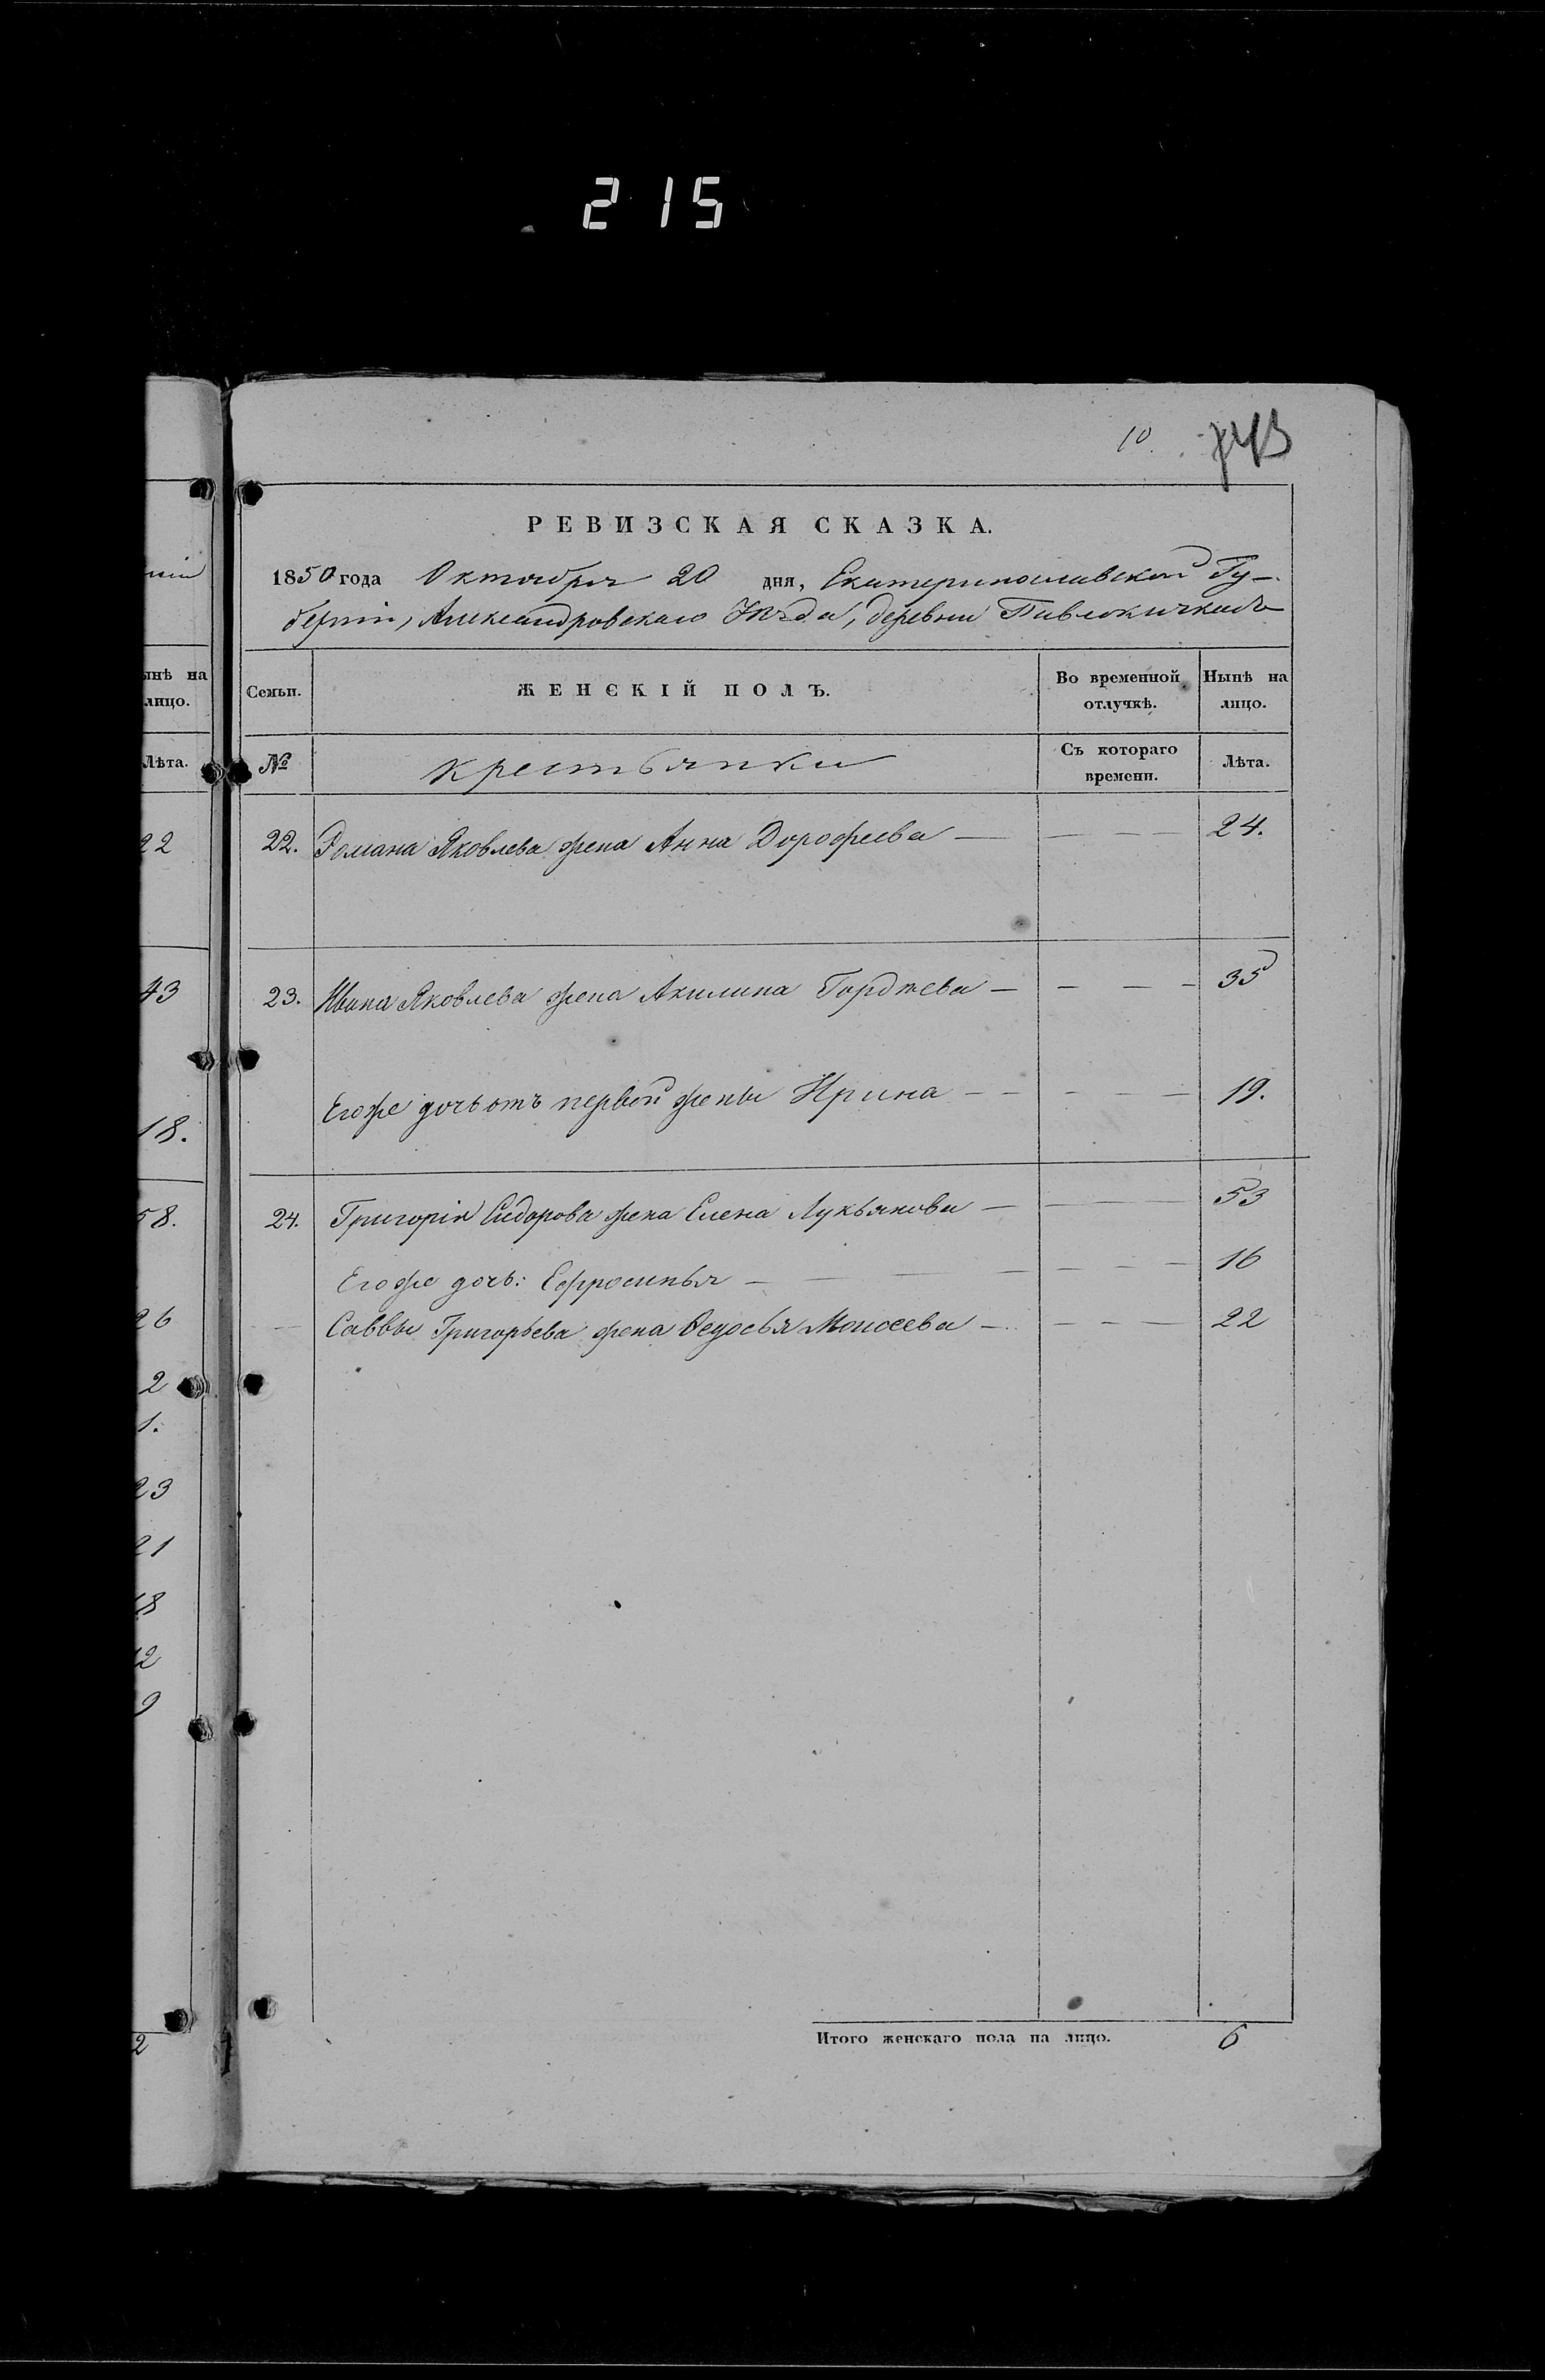 215
10.
РЕВИЗСКАЯ СКАЗКА.
1850 года Октября 20 дня, Екатеринославской Гу-
берніи, Александровскаго Уѣзда, деревни
Семьи. ЖЕНСКІЙ ПОЛЪ. Во временной отлучкѣ. Нынѣ на лицо.
№ Крестьянки Съ котораго времени. Лѣта.
22. Романа Яковлева жена Анна Дорофеева — — — — 24.
23. Ивана Яковлева жена Акилина Гордѣева — — — — 35
Егоже дочь отъ первой жены Ирина — — — — — 19.
24. Григорія Сидорова жена Елена Лукьянова — — — 53
Егоже дочь: Ефросинья — — — — — — — 16
Саввы Григорьева жена Федосья Моисеева — — — — 22
Итого женскаго пола на лицо. 6
ынѣ на
лицо.
Лѣта.
22
43
18.
58.
26
2
1.
23
21
18
12
9
2